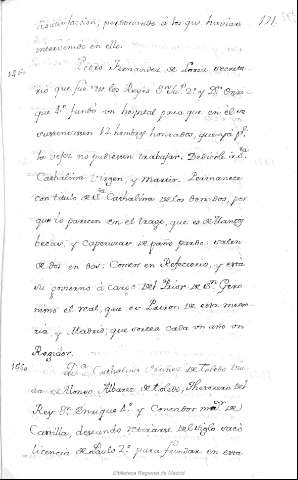 satisfaccion, perdonando à los que havian
171.
intervenido en ello.
1460
Pedro Fernandez de Lorca secreta
rio que fuè de los Reyes Dn. Jun. 2º. y Dn. Enri-
que 4º. fundò un hospital para que en èl se
sustentasen 12 hombres honrados, que yà pr.
la vejez no pudiesen trabajar. Dedicòle à Sta.
Cathalina Virgen, y Martir. Permanece
con titulo de Sta. Cathalina de los Donados, por
que lo parecen en el trage, que es de Mantos,
becas, y caperuzas de paño pardo: salen
de dos en dos: Comen en Refectorio, y està
su govierno à cargo del Prior de Sn. Gero
nimo el real, que es Patron de esta memo
ria, y Madrid, que sortea cada un año un
Regidor.
Da. Cathalina Nuñez de Toledo viu
da de Alonso Albarez de toledo, Thesorero del
Rey Dn. Enrique 4º. y Contador mayr. de
Castilla, deseando retirarse del siglo sacò
licencia de Paulo 2º. para fundar en esta
Biblioteca Regional de Madrid